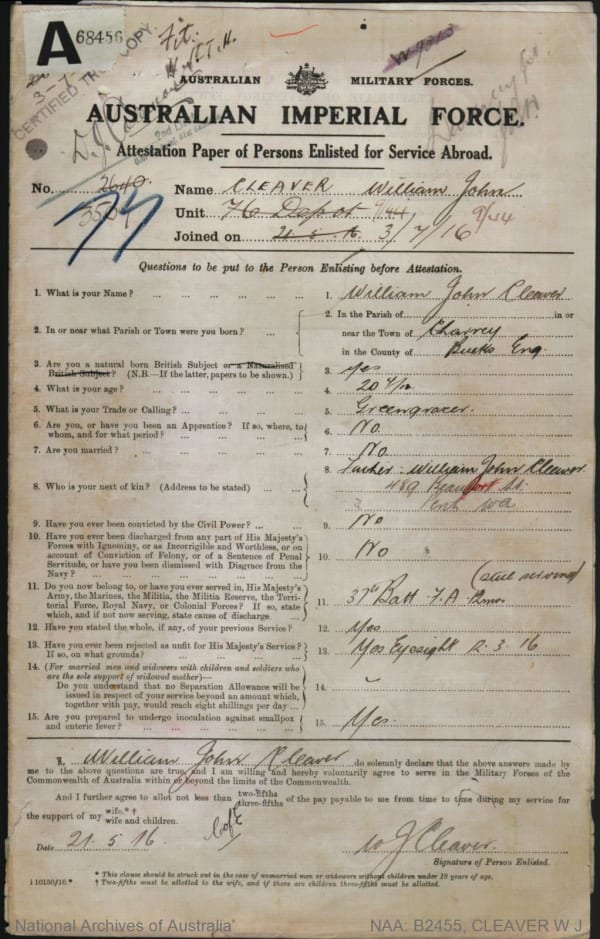 A 68456
Fit.
CERTIFIED TRUE COPY.
3-7
AUSTRALIAN MILITARY FORCES.
AUSTRALIAN IMPERIAL FORCE.
Attestation Paper of Persons Enlisted for Service Abroad.
No. 2640. Name CLEAVER William John
77
Unit 76 Depot 9/44 9/44
Joined on 21.5.16 3/7/16
Questions to be put to the Person Enlisting before Attestation.
1. What is your Name? 1. William John Cleaver
2. In or near what Parish or Town were you born? 2. In the Parish of in or
near the Town of
in the County of Bucks Eng
3. Are you a natural born British Subject or a Naturalised
British Subject? (N.B.—If the latter, papers to be shown.) 3. Yes
4. What is your age? 4. 20
5. What is your Trade or Calling? 5. Greengrocer.
6. Are you, or have you been an Apprentice? If so, where, to
whom, and for what period? 6. No
7. Are you married? 7. No
8. Who is your next of kin? (Address to be stated) 8. Father: William John Cleaver
489 Beaufort St.
Perth WA
9. Have you ever been convicted by the Civil Power? 9. No
10. Have you ever been discharged from any part of His Majesty's
Forces with Ignominy, or as Incorrigible and Worthless, or on
account of Conviction of Felony, or of a Sentence of Penal
Servitude, or have you been dismissed with Disgrace from the
Navy? 10. No
11. Do you now belong to, or have you ever served in, His Majesty's
Army, the Marines, the Militia, the Militia Reserve, the Terri-
torial Force, Royal Navy, or Colonial Forces? If so, state
which, and if not now serving, state cause of discharge 11. 37th Batt. F.A. (still serving)
12. Have you stated the whole, if any, of your previous Service? 12. Yes
13. Have you ever been rejected as unfit for His Majesty's Service?
If so, on what grounds? 13. Yes Eyesight 2.3.16
14. (For married men and widowers with children and soldiers who
are the sole support of widowed mother)—
Do you understand that no Separation Allowance will be
issued in respect of your service beyond an amount which,
together with pay, would reach eight shillings per day 14. -
15. Are you prepared to undergo inoculation against smallpox
and enteric fever? 15. Yes.
I, William John Cleaver do solemnly declare that the above answers made by
me to the above questions are true, and I am willing and hereby voluntarily agree to serve in the Military Forces of the
Commonwealth of Australia within or beyond the limits of the Commonwealth.
And I further agree to allot not less than two-fifths three-fifths of the pay payable to me from time to time during my service for
the support of my wife.*† wife and children.
C of E
Date 21.5.16 W J Cleaver.
Signature of Person Enlisted.
* This clause should be struck out in the case of unmarried men or widowers without children under 18 years of age.
† Two-fifths must be allotted to the wife, and if there are children three-fifths must be allotted.
I 10150/16.*
National Archives of Australia NAA: B2455, CLEAVER W J